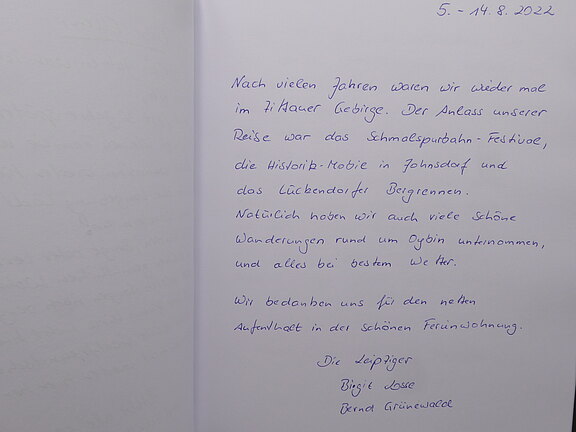 5. - 14. 8. 2022
Nach vielen Jahren waren wir wieder mal
im Zittauer Gebirge. Der Anlass unserer
Reise war das Schmalspurbahn-Festival,
die Historik-Mobie in Johnsdorf und
das Lückendorfer Bergrennen.
Natürlich haben wir auch viele schöne
Wanderungen rund um Oybin unternommen,
und alles bei bestem Wetter.
Wir bedanken uns für den netten
Aufenthalt in der schönen Ferienwohnung.
Die Leipziger
Birgit Losse
Bernd Grünewald